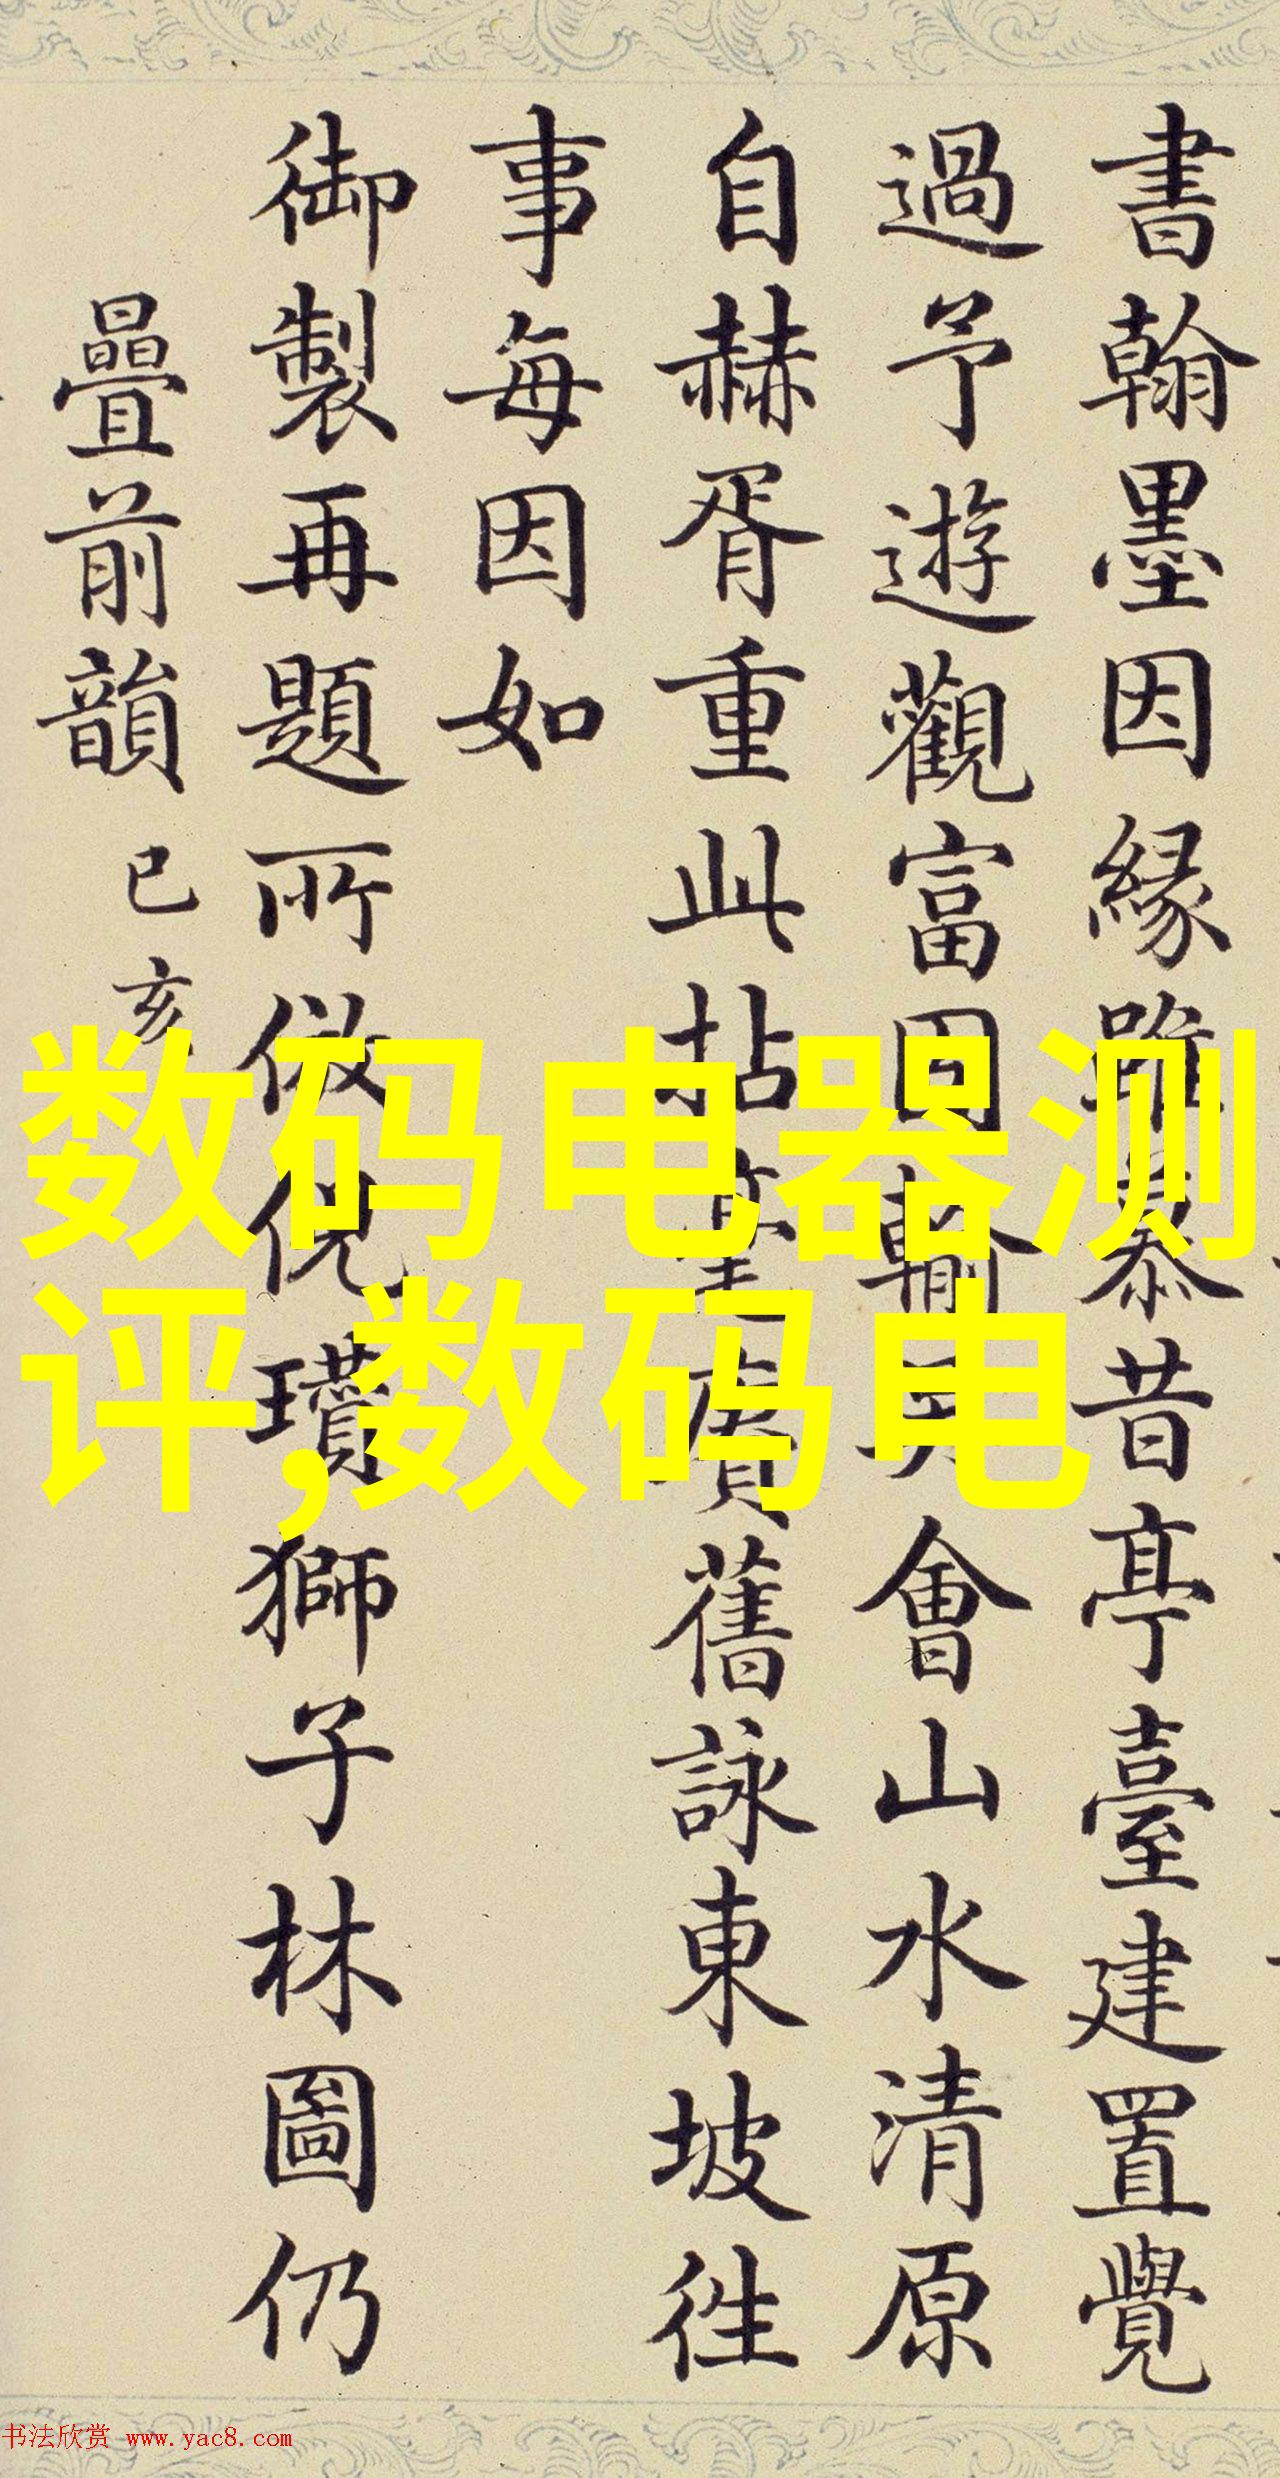 書翰墨因緣雖慕昔亭臺建置覺
過予遊觀富固輸具會山水清原
自赫胥重此拈筆賡舊詠東坡徃
事每因如
御製再題所倣倪瓚獅子林圖仍
疊前韻 己亥
数码电器测
评,数码电
书法欣赏 www.yac8.com